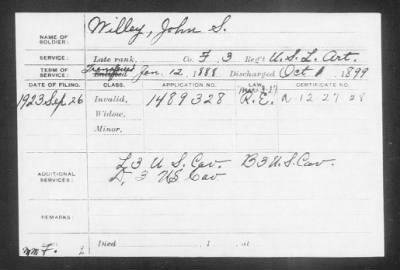 NAME OF SOLDIER: Willey, John S.
SERVICE: Late rank, Co. F. 3 Reg't U.S.L. Art.
TERM OF SERVICE: Enlisted Jan. 12, 1888 Discharged Oct 1, 1899
DATE OF FILING. CLASS. APPLICATION NO. LAW. CERTIFICATE NO.
1923 Sep 26 Invalid, 1489328 R.E. 12 27 28
Widow,
Minor,
ADDITIONAL SERVICES: L 3 U S. Cav. B 3 U.S. Cav.
D, 3 US Cav
REMARKS:
Died , 1 , at